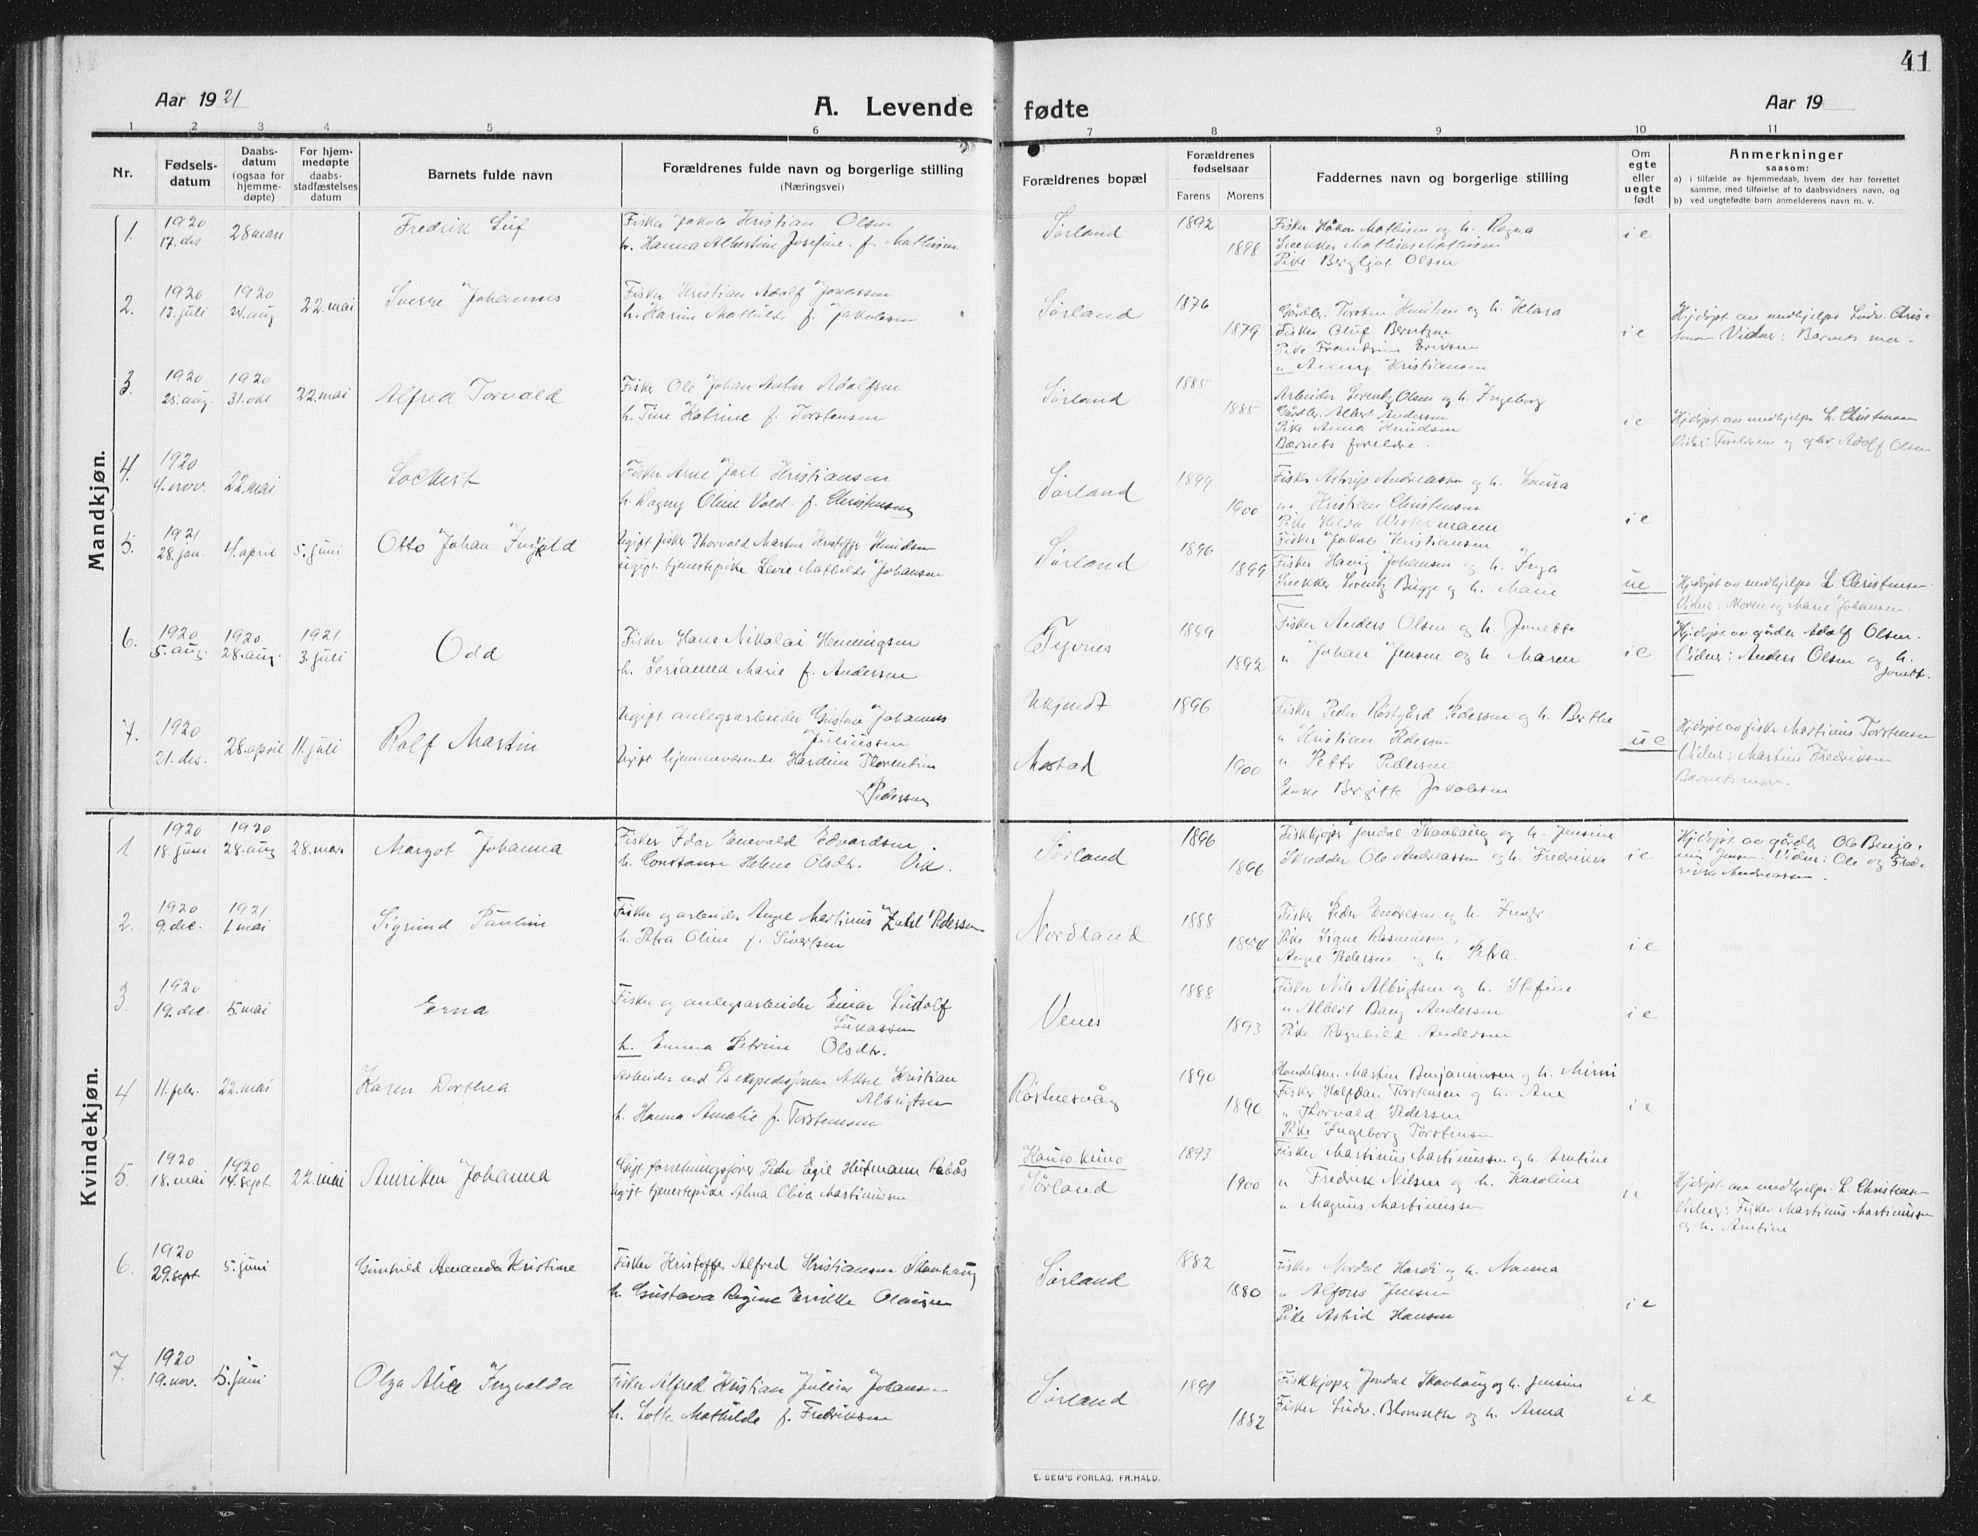 41
Aar 1921
A. Levende fødte
Aar 19
1 2 3 4 5 6 7 8 9 10 11
Nr.
Fødsels-
datum
Daabs-
datum
(ogsaa for
hjemme-
døpte)
For hjem-
medøpte
daabs-
stadfæstelses
datum
Barnets fulde navn
Forældrenes fulde navn og borgerlige stilling
(Næringsvei)
Forældrenes bopæl
Forældrenes
fødselsaar
Farens Morens
Faddernes navn og borgerlige stilling
Om
egte
eller
uegte
født
Anmerkninger
saasom:
a) i tilfælde av hjemmedaab, hvem der har forrettet
samme, med tilføielse af to daabsvidners navn, og
b) ved uegtefødte barn anmelderens navn m. v.
Mandkjøn.
1. 1920 17. des 28 mars Fredrik
Fisker Jakob Kristian Olsen
h. Hanna Albertine Josefine f. Mathisen
Sørland 1892 1898
Fisker Håkon Mathisen og h. Ragna
Snekker Mathias Mathisen
Pike Bergljot Olsen
i e
2. 1920 13. juli 1920 24. aug. 22. mai Sverre Johannes
Fisker Kristian Adolf Jonassen
h. Karine Mathilde f. Jakobsen
Sørland 1876 1879
Gårdbr. Torsten Knutsen og h. Klara
Fisker Oluf Berntzen
Pike Frantzine Eriksen
" Anny Kristiansen
i e
Hjdøpt av medhjelper Ludv. Chris-
tensen Vidner: Barnets mor.
3. 1920 25. aug. 1920 31. okt 22. mai Alfred Torvald
Fisker Ole Johan Anton Adolfsen
h. Tine Katrine f. Torstensen
Sørland 1885 1885
Arbeider Lorentz Olsen og h. Ingeborg
Gårdbr. Albert Andersen
Pike Anna Knudsen
Barnets foreldre.
i e
Hjdøpt av medhjelper L. Christensen
Vidn: Foreldrene og gbr Adolf Olsen
4. 1920 4. nov. 22. mai
Fisker Arne Jarl Kristiansen
h. Dagny Oline Vold f. Christensen
Sørland 1899 1900
Fisker Andreassen og h. Laura
" Kristian Christensen
Pike Hilda Westermann
Fisker Jakob Kristiansen
i e
5. 1921 28. jan. 4. april 5. juni Otto Johan
Ugift fisker Thorvald Martin Kristoffer Knudsen
ugift tjenestepike Levie Mathilde Johansen
Sørland 1896 1899
Fisker Havig Johansen og h. Inga
Snekker Lorentz Bugge og h. Marie
ue
Hjdøpt av medhjelper L. Christensen
Vidner: Moren og Marie Johansen.
6. 1920 5. aug. 1920 28. aug. 1921 3. juli Odd
Fisker Hans Nikolai Henningsen
h. Marie f. Andersen
Tyvnes 1899 1892
Fisker Anders Olsen og h. Jonette
" Johan Jensen og h. Maren
i e
Hjdøpt av gårdbr Adolf Olsen.
Vidner: Anders Olsen og h.
Jonette.
7. 1920 21. des. 28. april 11. juli Rolf Martin
Ugift anlegsarbeider Gustav Johannes
Juliussen
Ugift hjemmeværende Hardine Florentine
Pedersen
Ukjendt
Mostad
1896 1900
Fisker Peder Røstgård Pedersen og h. Berthe
" Kristian Pedersen
" Petter Pedersen
Enke Bergitte Jakobsen
ue
Hjdøpt av fisker Martinus Torstensen
Vidner: Martine Fredriksen
Barnets mor.
Kvindekjøn.
1. 1920 18. juni 1920 28. aug 28. mars Margot Johanna
Fisker Idar Enevald Edvardsen
h. Constanse Helene Olsdtr. Vik.
Sørland 1896 1896
Fiskkjøper Jendal Skavhaug og h. Jensine
Skredder Ole Andreassen og h. Fredrikke
i e
Hjdøpt av gårdbr Ole Benja-
min Jensen. Vidner: Ole og Fred-
rikke Andreassen.
2. 1920 9. dec. 1921 1 mai Sigrund Pauline
Fisker og arbeider Angel Martinus Zahl Pedersen
h. Petra Oline f. Sivertsen
Nordland 1888
Fisker Peder Endresen og h. Inger
Pike Signe Rasmussen,
Angel Pedersen og h. Petra.
i e
3. 1920 19. dec. 5. mai Erna
Fisker og anlegsarbeider Einar Ludolf
Lukassen
h. Emma Petrine Olsdtr.
Venes 1888 1893
Fisker Nils Albrigtsen og h. Stefine
" Albert Bang Andersen
Pike Ragnhild Andersen
i e
4 11. febr. 22. mai Karen Dorthea
Arbeider ved D/S ekspedisjonen Aksel Kristian
Albrigtsen
h. Hanna Amalie f. Torstensen
Røstnesvåg 1890 1896
Handelsm. Martin Benjaminsen og h. Mimi
Fisker Halfdan Torstensen og h. Ane
" Thorvald Pedersen
Pike Ingeborg Torstensen
i e
5. 1920 18. mai 1920 14. sept. 22. mai Anriken Johanna
Gift forretningsfører Peder Egil Hufmann
Ugift tjenestepike Alma Oliva Martinussen
Kautokeino
Sørland
1893 1900
Fisker Martinus Martinussen og h. Arntine
" Fredrik Nilsen og h. Karoline
" Magnus Martinussen
Hjdøpt av medhjelper L. Christensen
Vidner: Fisker Martinus Martinussen
og h. Arntine
6. 1920 29. sept. 5. juni Gunhild Amanda Kristine
Fisker Kristoffer Alfred Kristiansen Skavhaug
h. Gustava Regine Olausen
Sørland 1882 1880
Fisker Nordal Hardi og h. Nanna
" Alfons Jensen
Pike Astrid Hansen
i e
7. 1920 19. nov. 5. juni Olga Alice Ingvalda
Fisker Alfred Kristian Julius Johansen
h. Lotte Mathilde f. Fredriksen
Sørland 1891 1882
Fiskkjøper Jendal Skavhaug og h. Jensine
Fisker Ludv. Blomseth og h. Anna
i e
E. SEM'S FORLAG, FR.HALD.